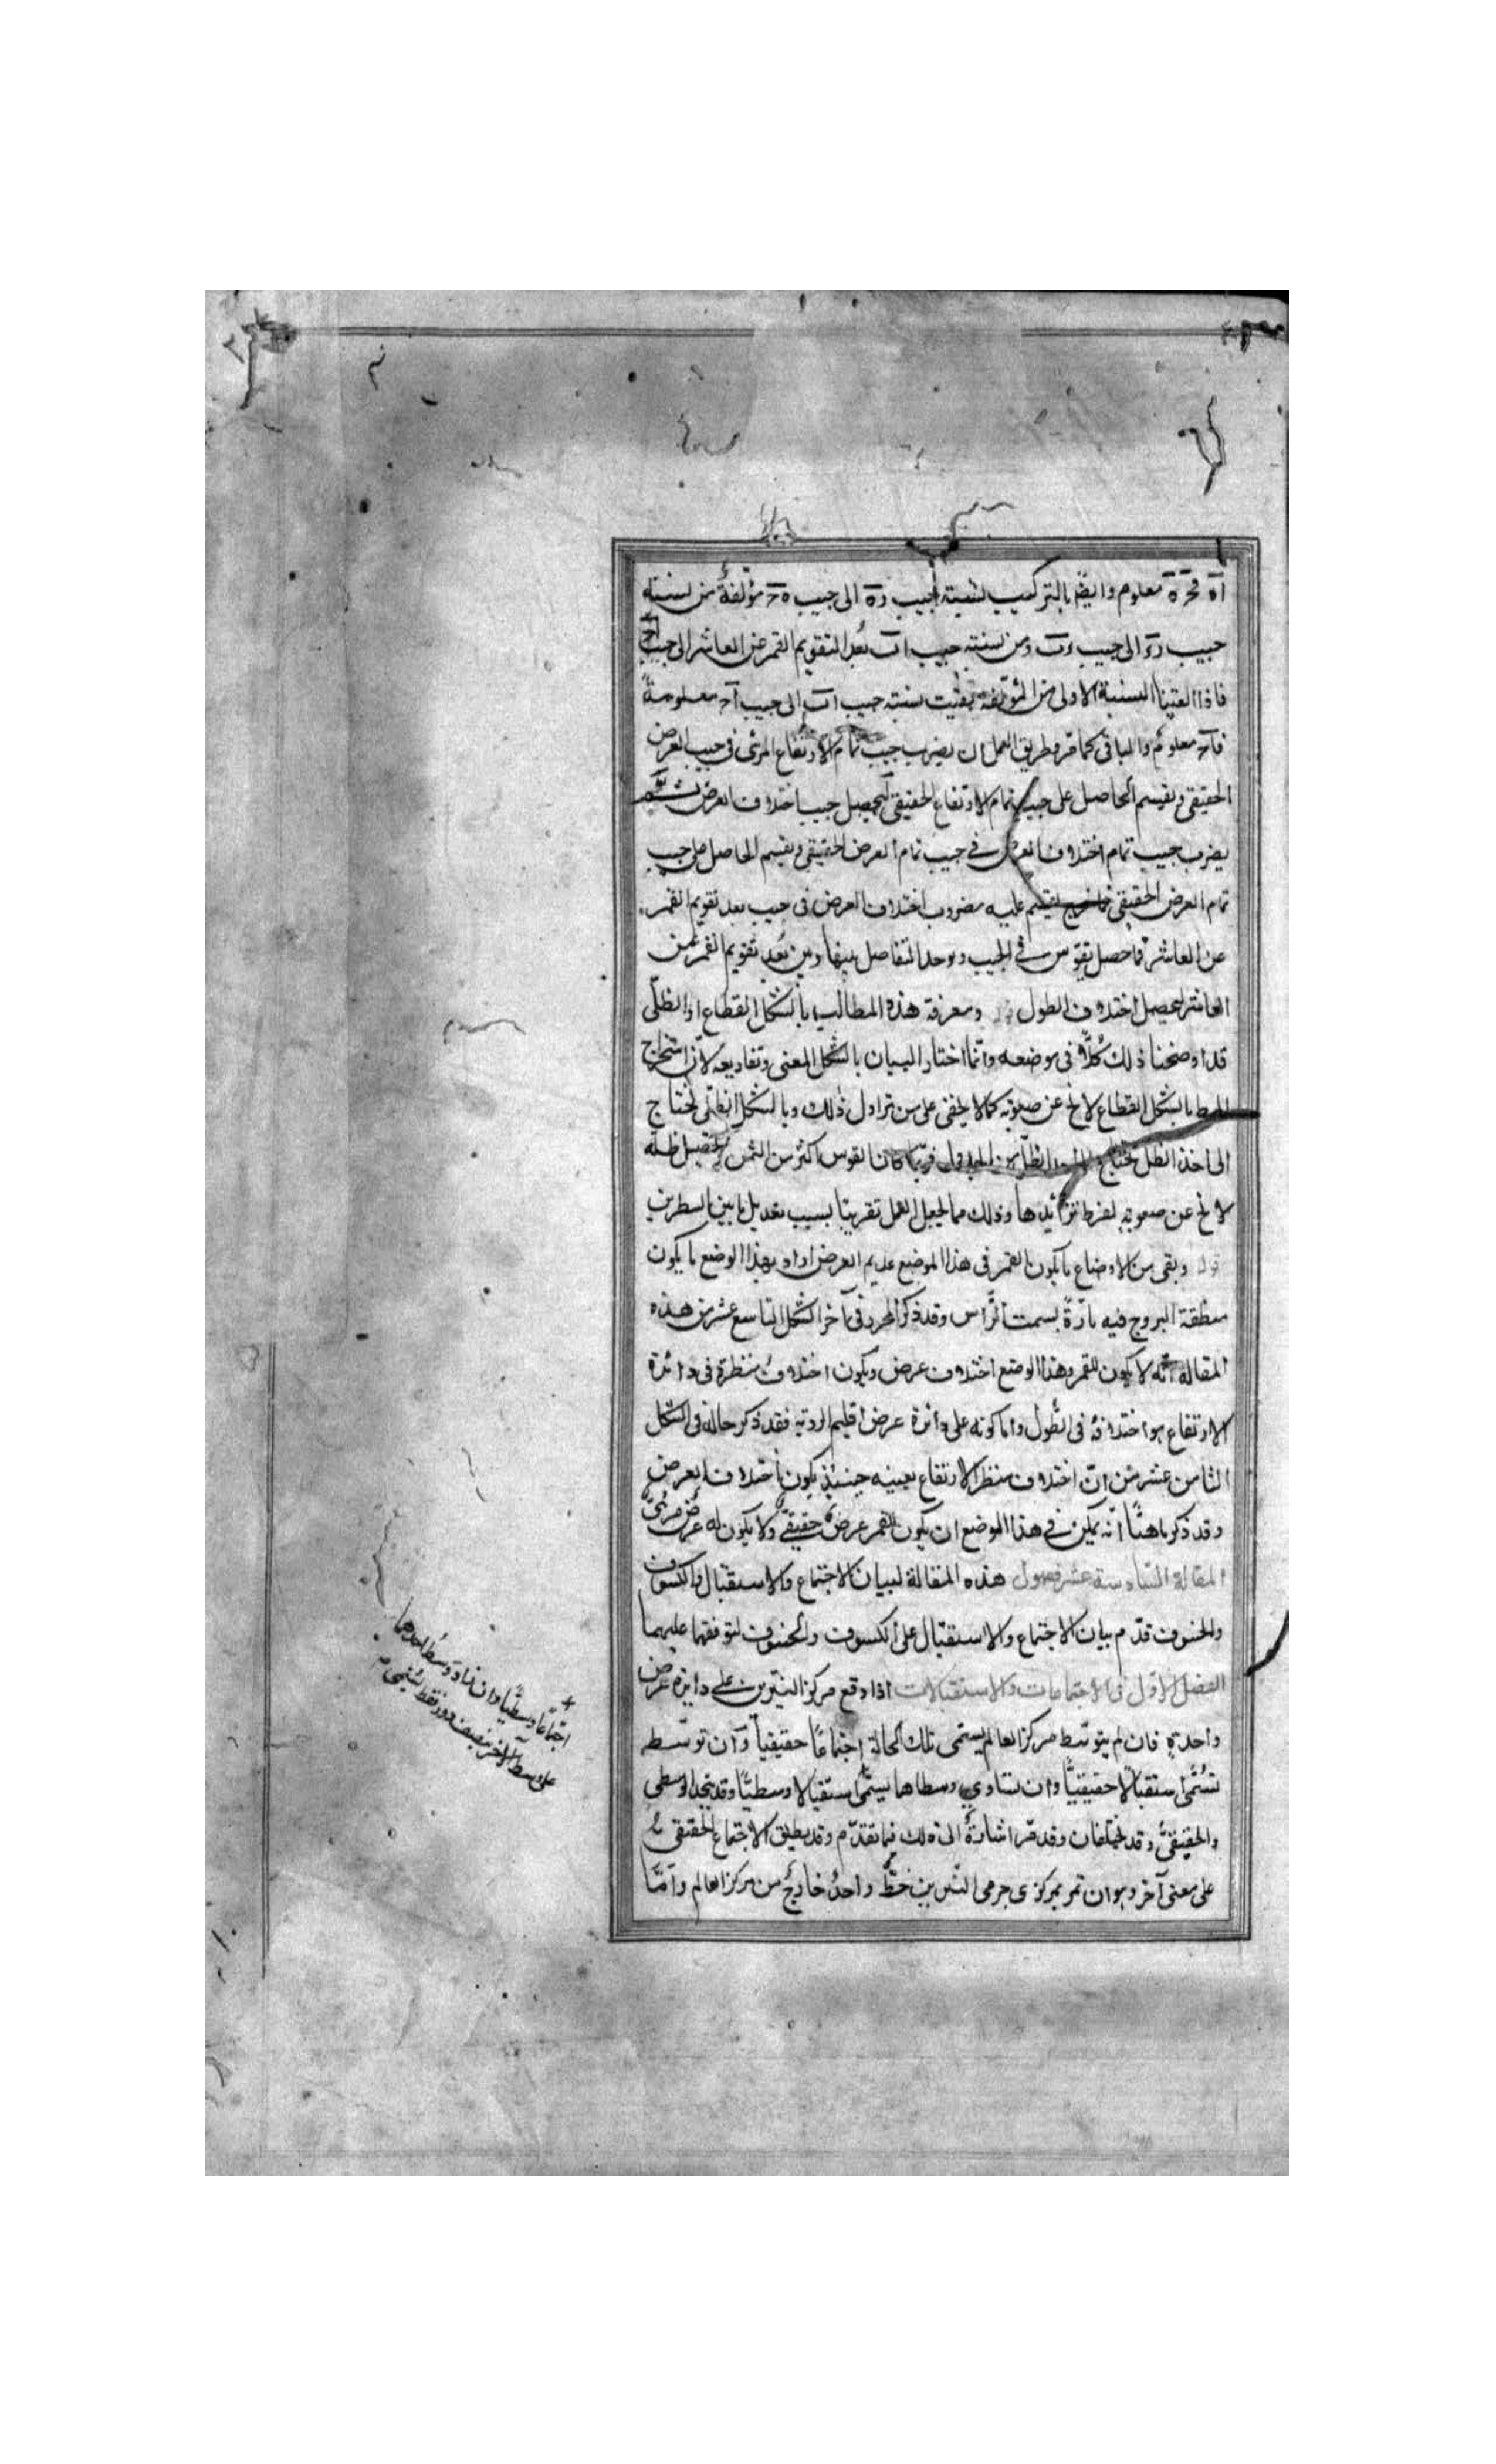 اه فحره معلوم وايضم بالتركيب لنسبة جيب ره الى جيب ه‍ح مؤلفة من نسبة
جيب رء الى جيب وب ومن نسبة جيب اب بُعد التقويم القمر عن العاشر الى جيب اح
فاذا العينا النسبة الاولى من المؤلفة بقيت نسبة جيب اب الى جيب آح معلومةً
فآح معلومٌ والباقى كما مرّ وطريق العمل ان يضرب جيب تمام الارتفاع المرئى فى جيب العرض
الحقيقى ويقسم الحاصل على جيب تمام الارتفاع الحقيقى ليحصل جيب اختلاف العرض ثمّ
يضرب جيب تمام اختلاف العرض فى جيب تمام العرض الحقيقى ويقسم الحاصل على جيب
تمام العرض الحقيقى فما خرج يقسم عليه مضروب اختلاف العرض فى جيب بعد تقويم القمر
عن العاشر فما حصل يقوّس فى الجيب ويوخذ التفاضل بينها وبين بُعد تقويم القمر عن
العاشر ليحصل اختلاف الطول ومعرفة هذه المطالب بالشكل القطاع او الظلّى
قد اوضحنا ذلك كُلّاً فى موضعه وانّما اختار البيان بالشكل المغنى وتفاريعه لأنّ استخراج
بالشكل القطاع لا يخ عن صعوبة كما لا يخفى على من تزاول ذلك وبالشكل الظلّى يحتاج
الى اخذ الظل يحتاج الظلّ من الجدول فربّما كان القوس اكثر من الثمن وتحصيل ظلّه
لا يخ عن صعوبة لفرط تزائدها وذلك مما يجعل العمل تقريبا بسبب تعديل ما بين السطرين
قوله وبقى من الاوضاع ما يكون القمر فى هذا الموضع عديم العرض اراد بهذا الوضع ما يكون
منطقة البروج فيه مارّةً بسمت الرّاس وقد ذكر المحرر فى آخر الشكل التاسع عشر من هذه
المقالة انّه لا يكون للقمر وهذا الوضع اختلاف عرض ويكون اختلاف منظره فى دائرة
الارتفاع هو اختلافه فى الطول واما كونه على دائرة عرض اقليم الروية فقد ذكر حاله فى الشكل
الثامن عشر من انّ اختلاف منظر الارتفاع بعينه حينئذٍ يكون اختلاف العرض
وقد ذكر ها هنا انّه يمكن فى هذا الموضع ان يكون للقمر عرضٌ حقيقىٌ ولا يكون له عرضٌ مرئىٌّ
المقالة السادسة عشر فصول هذه المقالة لبيان الاجتماع والاستقبال والكسوف
والخسوف قدّم بيان الاجتماع والاستقبال على الكسوف والخسوف لتوقفهما عليهما
الفصل الاول فى الاجتماعات والاستقبالات اذا وقع مركز النيّرين على دايرة عرض
واحدةٍ فان لم يتوسّط مركز العالم يسمّى تلك الحالة اجتماعًا حقيقياً وان توسّط
تسمّى استقبالًا حقيقيًّا وان تساوى وسطاهما يسمّى استقبالا وسطيًّا وقد يتحد الوسطى
والحقيقىّ وقد يختلفان وقد مرّ اشارةٌ الى ذلك فيما تقدّم وقد يطلق الاجتماع الحقيقى
على معنى آخر وهو ان تمر بمركزى جرمى النيّرين خطٌّ واحدٌ خارجٌ من مركز العالم وامّا
اجتماعا وسطيًّا وان زاد وسط احدهما
على وسط الآخر بنصف دور فقط يُسمّى م